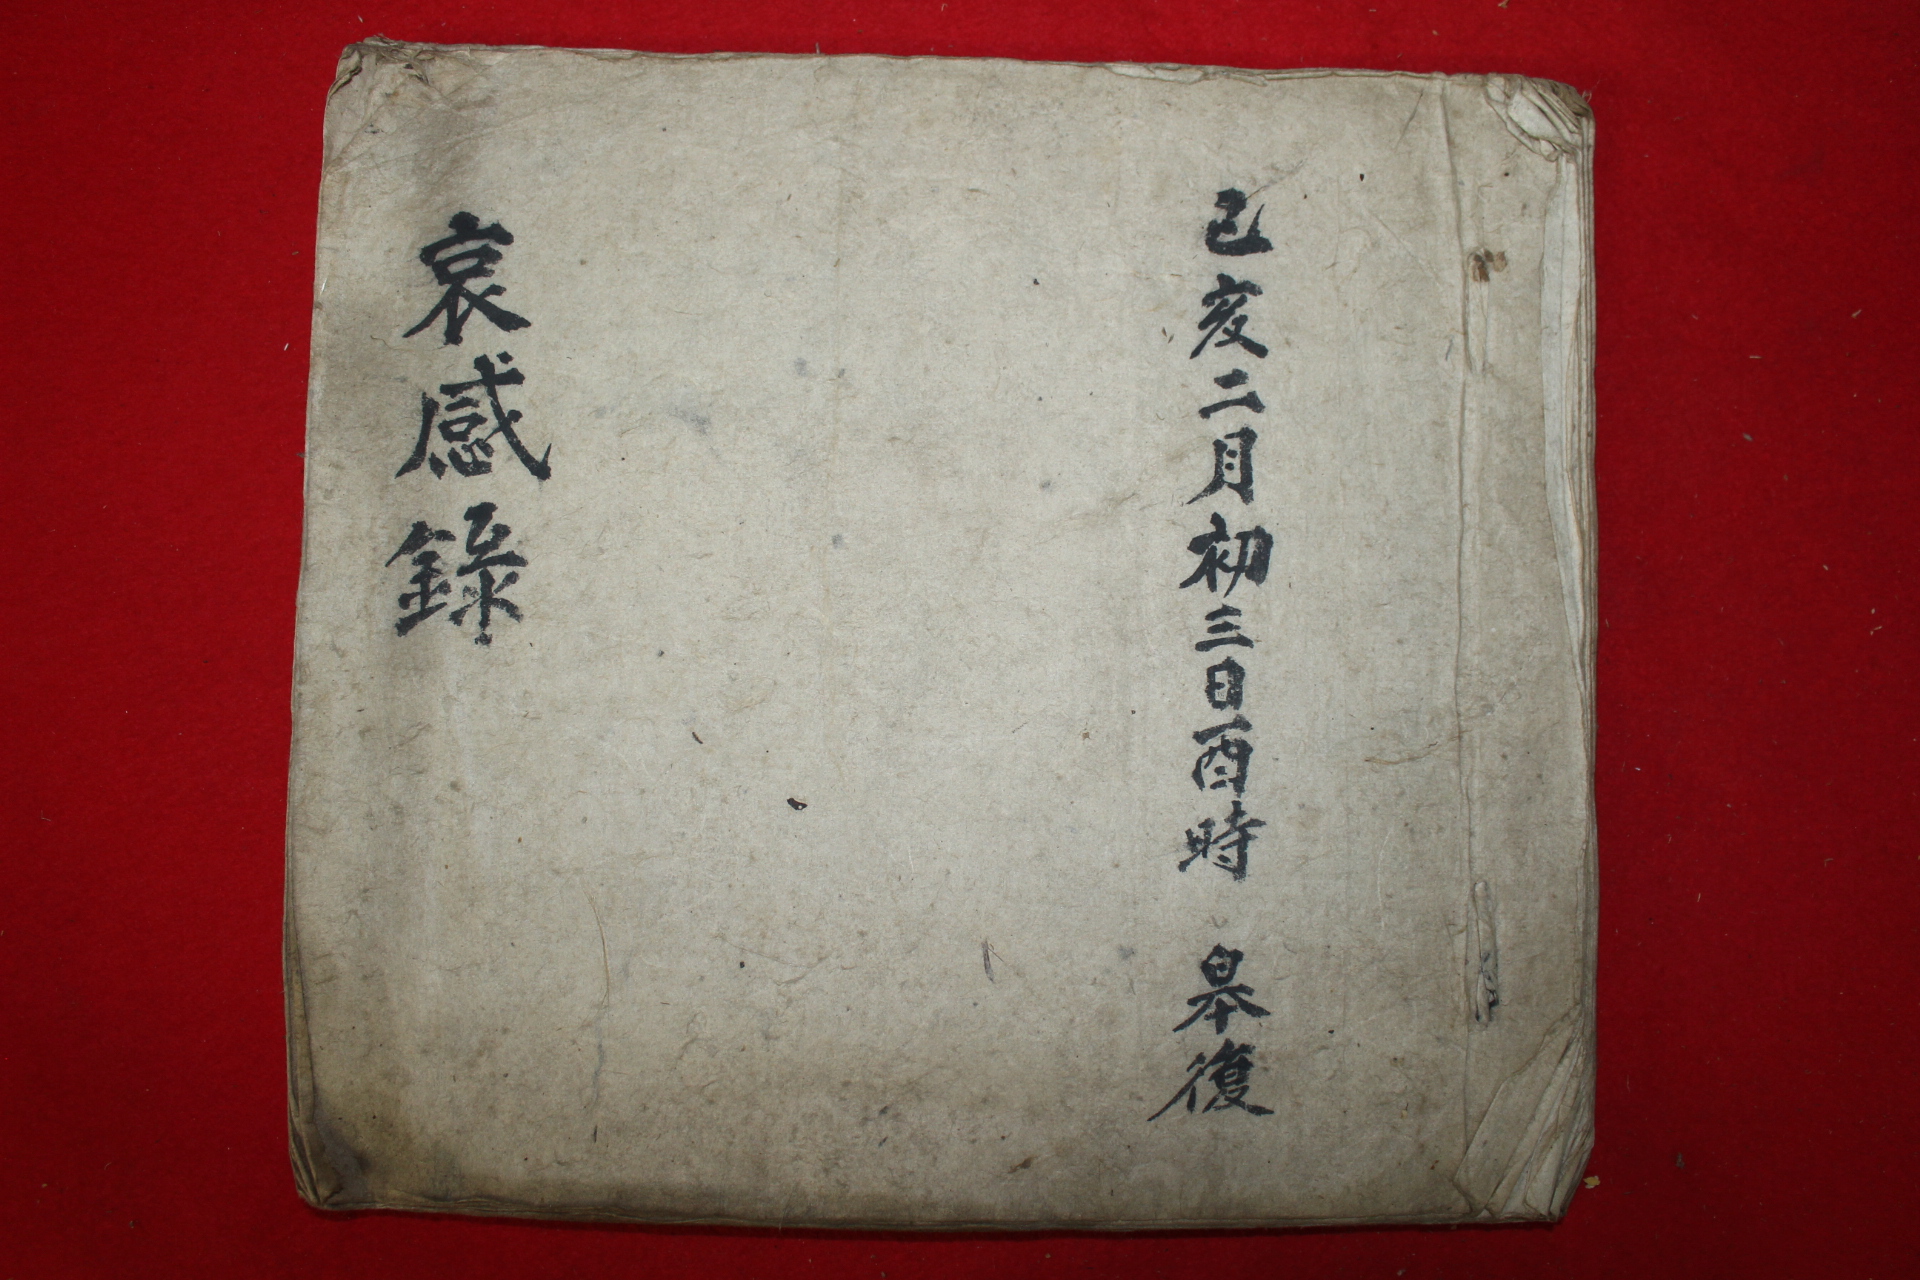 己亥二月初三日酉時 皋復
哀感錄